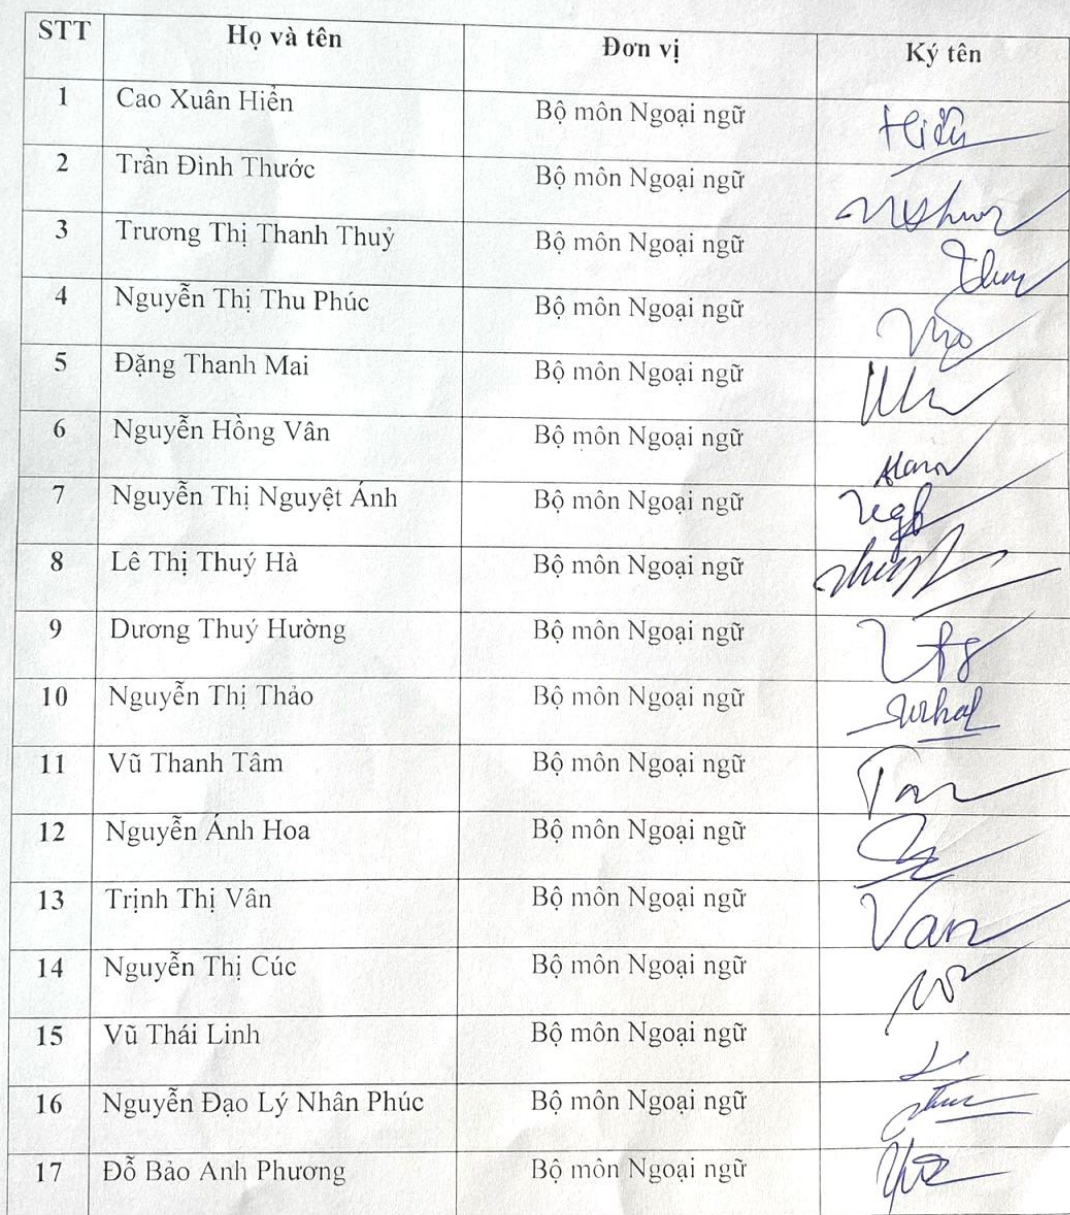 STT Họ và tên Đơn vị Ký tên
1 Cao Xuân Hiển Bộ môn Ngoại ngữ Hiển
2 Trần Đình Thước Bộ môn Ngoại ngữ
3 Trương Thị Thanh Thuỷ Bộ môn Ngoại ngữ Thuy
4 Nguyễn Thị Thu Phúc Bộ môn Ngoại ngữ
5 Đặng Thanh Mai Bộ môn Ngoại ngữ
6 Nguyễn Hồng Vân Bộ môn Ngoại ngữ
7 Nguyễn Thị Nguyệt Ánh Bộ môn Ngoại ngữ
8 Lê Thị Thuý Hà Bộ môn Ngoại ngữ
9 Dương Thuý Hường Bộ môn Ngoại ngữ
10 Nguyễn Thị Thảo Bộ môn Ngoại ngữ
11 Vũ Thanh Tâm Bộ môn Ngoại ngữ
12 Nguyễn Ánh Hoa Bộ môn Ngoại ngữ
13 Trịnh Thị Vân Bộ môn Ngoại ngữ Van
14 Nguyễn Thị Cúc Bộ môn Ngoại ngữ
15 Vũ Thái Linh Bộ môn Ngoại ngữ
16 Nguyễn Đạo Lý Nhân Phúc Bộ môn Ngoại ngữ
17 Đỗ Bảo Anh Phương Bộ môn Ngoại ngữ